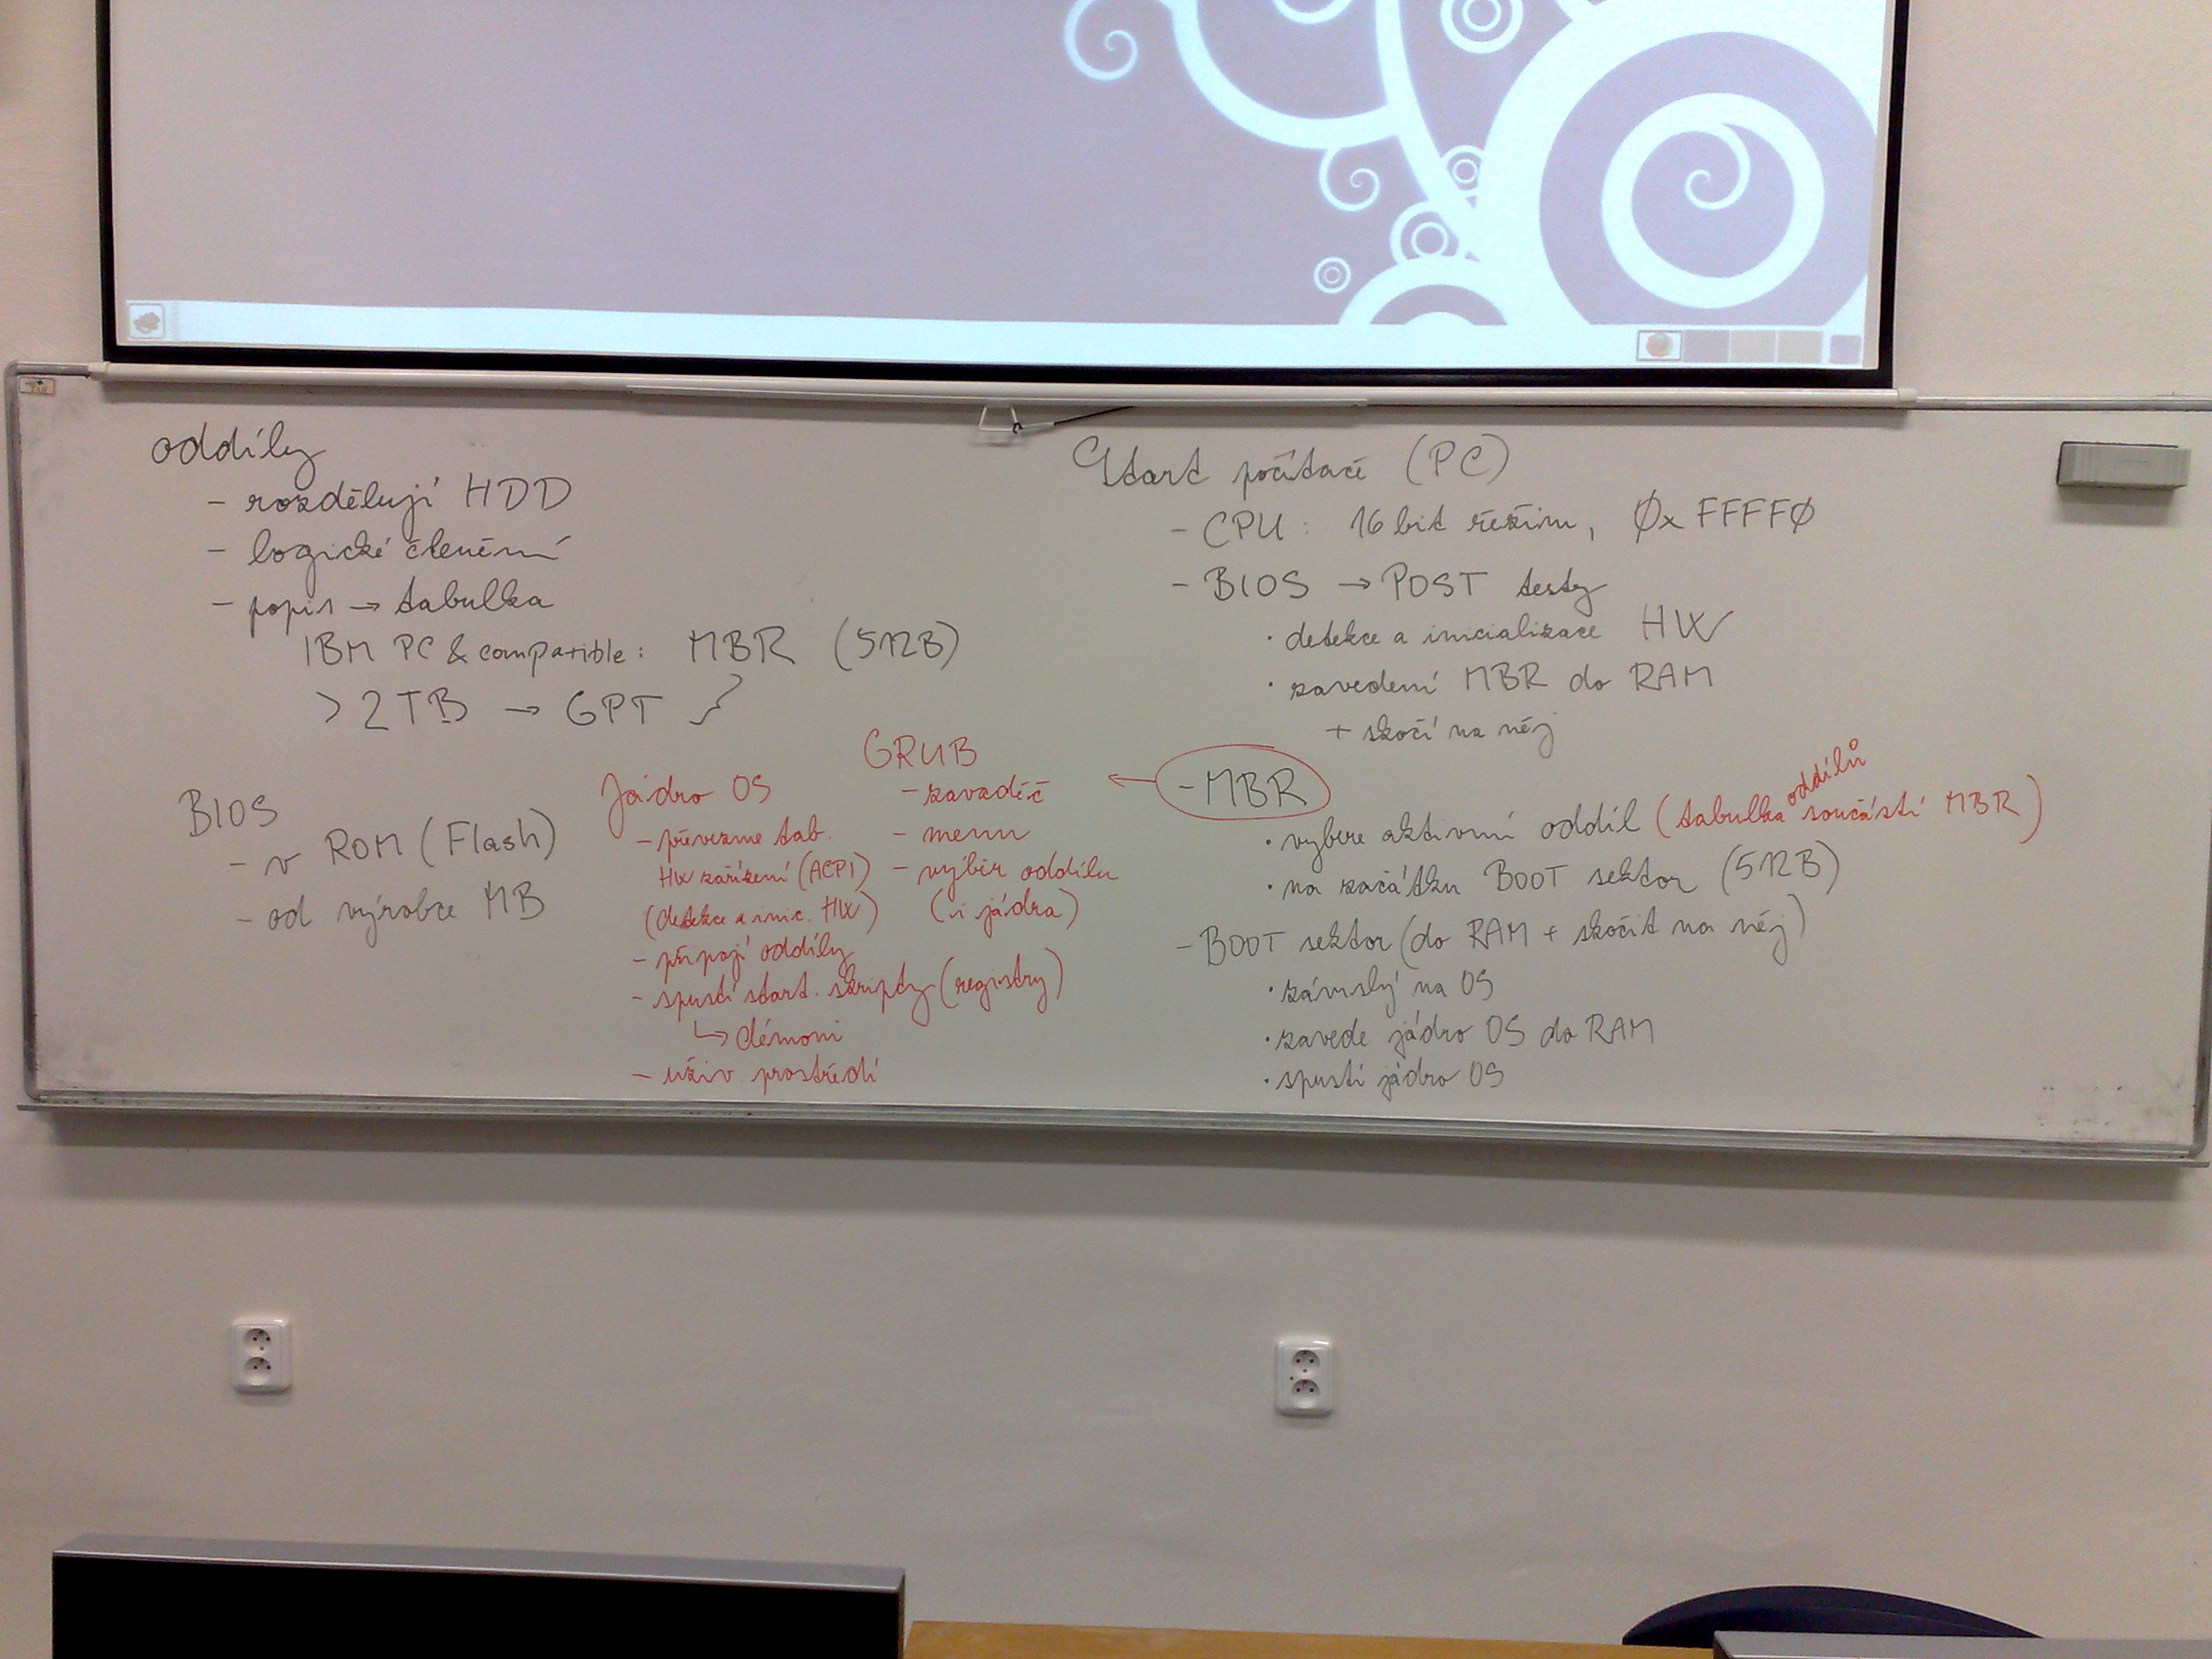 oddíly
- rozdělují HDD
- logické členění
- popis → tabulka
IBM PC & compatible: MBR (512B)
> 2TB → GPT }
BIOS
- v ROM (Flash)
- od výrobce MB
Jádro OS
- převezme tab.
HW zařízení (ACPI)
(detekce a inic. HW)
- připojí oddíly
- spustí start. skripty (registry)
↳ démoni
- uživ prostředí
GRUB
- zavaděč
- menu
- výběr oddílu
(i jádra)
Start počítače (PC)
- CPU: 16 bit režim, 0xFFFF0
- BIOS → POST testy
· detekce a inicializace HW
· zavedení MBR do RAM
+ skočí na něj
← - MBR
· vybere aktivní oddíl (tabulka oddílů součástí MBR)
· na začátku BOOT sektor (512B)
- BOOT sektor (do RAM + skočit na něj)
· závislý na OS
· zavede jádro OS do RAM
· spustí jádro OS